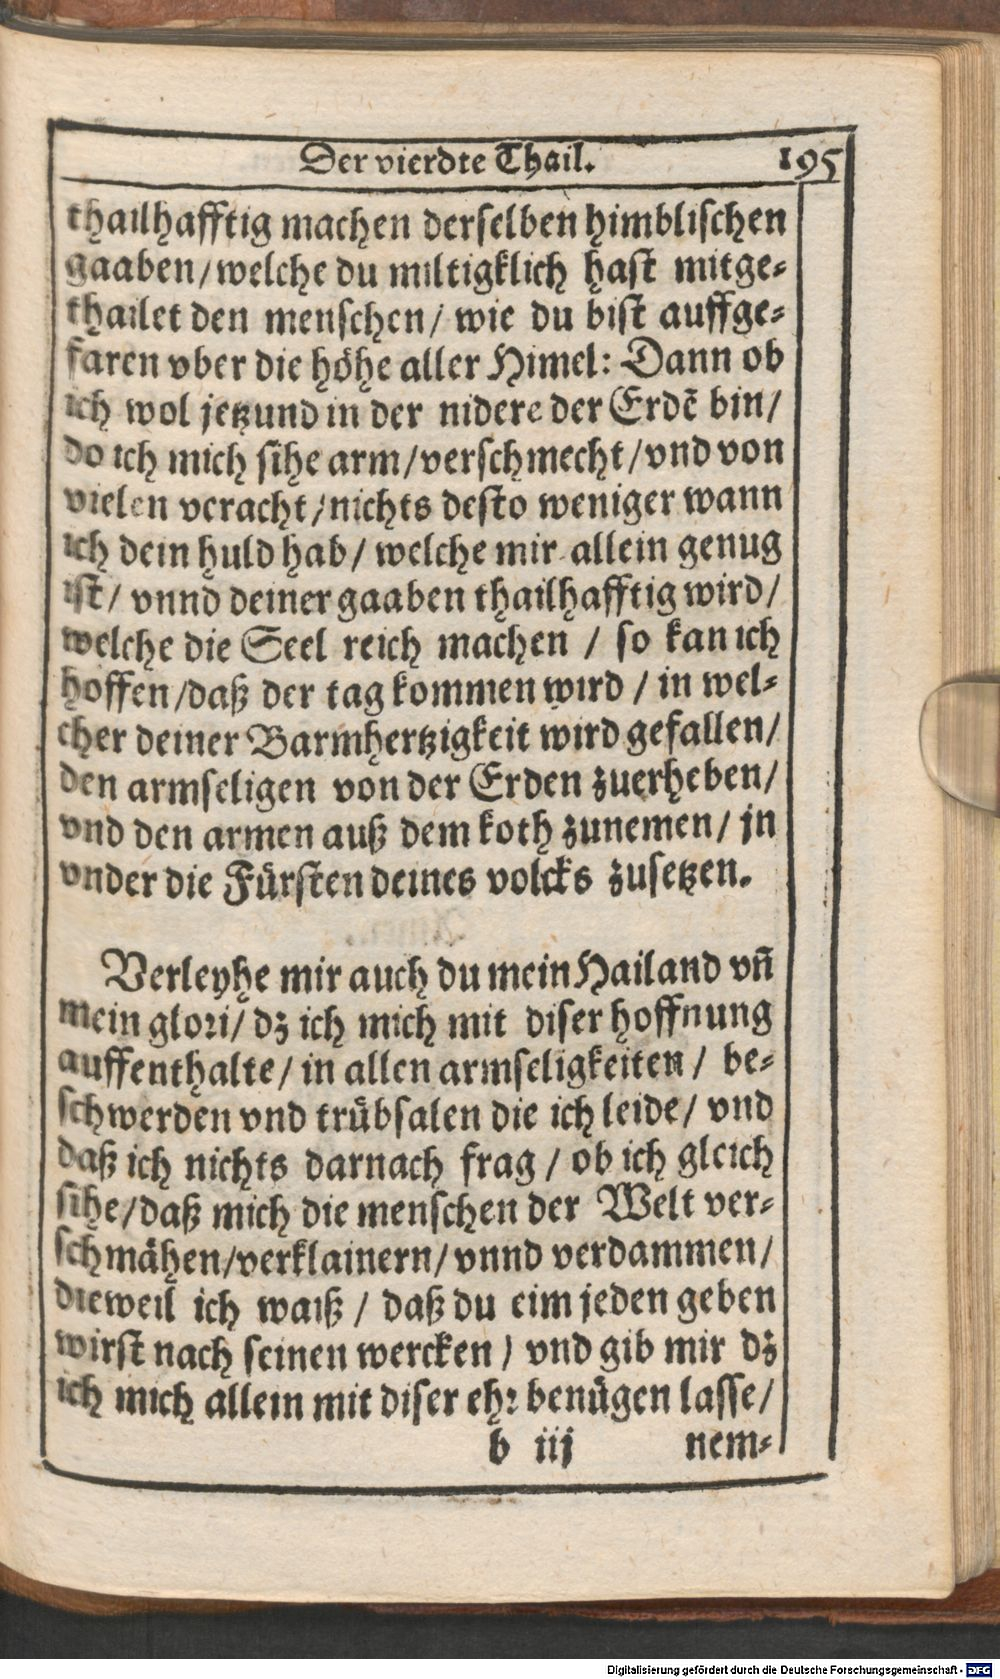 Der vierdte Thail. 195
thailhafftig machen derselben himblischen
gaaben/welche du miltigklich hast mitge-
thailet den menschen/ wie du bist auffge-
faren vber die höhe aller Himel: Dann ob
ich wol jetzund in der nidere der Erdē bin/
do ich mich sihe arm/verschmecht/vnd von
vielen veracht/nichts desto weniger wann
ich dein huld hab/ welche mir allein genug
ist/ vnnd deiner gaaben thailhafftig wird/
welche die Seel reich machen / so kan ich
hoffen/daß der tag kommen wird / in wel-
cher deiner Barmhertzigkeit wird gefallen/
den armseligen von der Erden zuerheben/
vnd den armen auß dem koth zunemen/ jn
vnder die Fürsten deines volcks zusetzen.
Verleyhe mir auch du mein Hailand vñ
mein glori/ dz ich mich mit diser hoffnung
auffenthalte/ in allen armseligkeiten / be-
schwerden vnd trübsalen die ich leide/ vnd
daß ich nichts darnach frag / ob ich gleich
sihe/daß mich die menschen der Welt ver-
schmähen/verklainern/ vnnd verdammen/
dieweil ich waiß / daß du eim jeden geben
wirst nach seinen wercken / vnd gib mir dz
ich mich allein mit diser ehr benügen lasse/
b iij nem-
Digitalisierung gefördert durch die Deutsche Forschungsgemeinschaft - DFG